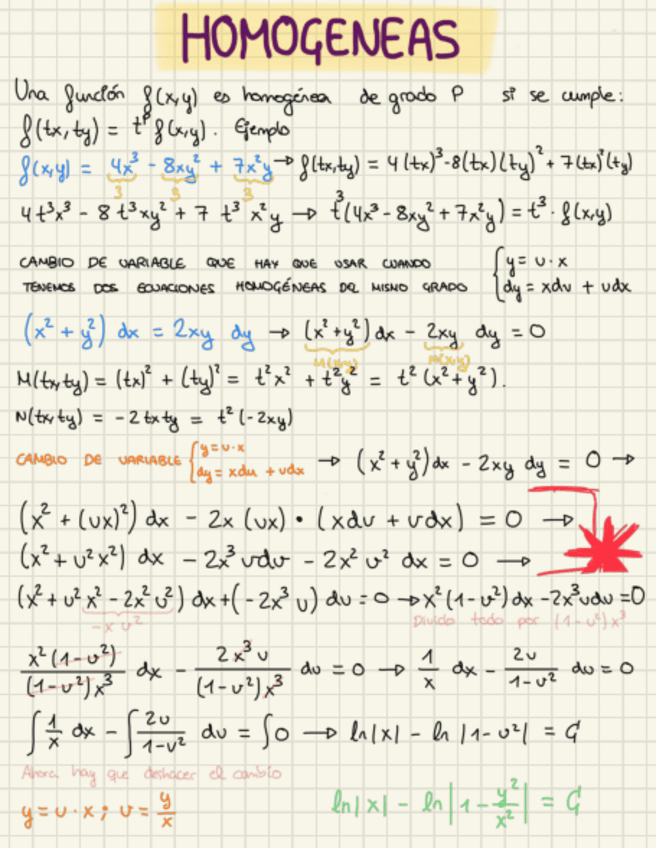 HOMOGENEAS
Una función f(x,y) es homogénea de grado P si se cumple:
f(tx,ty) = t^p f(x,y). Ejemplo
f(x,y) = 4x³ - 8xy² + 7x²y → f(tx,ty) = 4(tx)³-8(tx)(ty)² + 7(tx)²(ty)
3 3 3
4t³x³ - 8t³xy² + 7 t³ x²y → t³(4x³-8xy²+7x²y) = t³·f(x,y)
CAMBIO DE VARIABLE QUE HAY QUE USAR CUANDO { y = u·x
TENEMOS DOS ECUACIONES HOMOGÉNEAS DEL MISMO GRADO { dy = xdu + udx
(x² + y²) dx = 2xy dy → (x²+y²) dx - 2xy dy = 0
M(x,y) N(x,y)
M(tx,ty) = (tx)² + (ty)² = t²x² + t²y² = t² (x²+y²).
N(tx,ty) = -2txty = t²(-2xy)
CAMBIO DE VARIABLE { y=u·x
{ dy = xdu + udx → (x²+y²)dx - 2xy dy = 0 →
(x² + (ux)²) dx - 2x (ux) • (xdu + udx) = 0 →
(x² + u²x²) dx - 2x³udu - 2x² u² dx = 0 →
(x² + u²x² - 2x²u²) dx + (-2x³ u) du = 0 → x²(1-u²)dx -2x³udu = 0
-x²u² Divido todo por (1-u²)x³
x²(1-u²)/(1-u²)x³ dx - 2x³u/(1-u²)x³ du = 0 → 1/x dx - 2u/1-u² du = 0
∫ 1/x dx - ∫ 2u/1-u² du = ∫0 → ln|x| - ln |1-u²| = C
Ahora hay que deshacer el cambio
y = u·x ; u = y/x ln|x| - ln|1 - y²/x²| = C